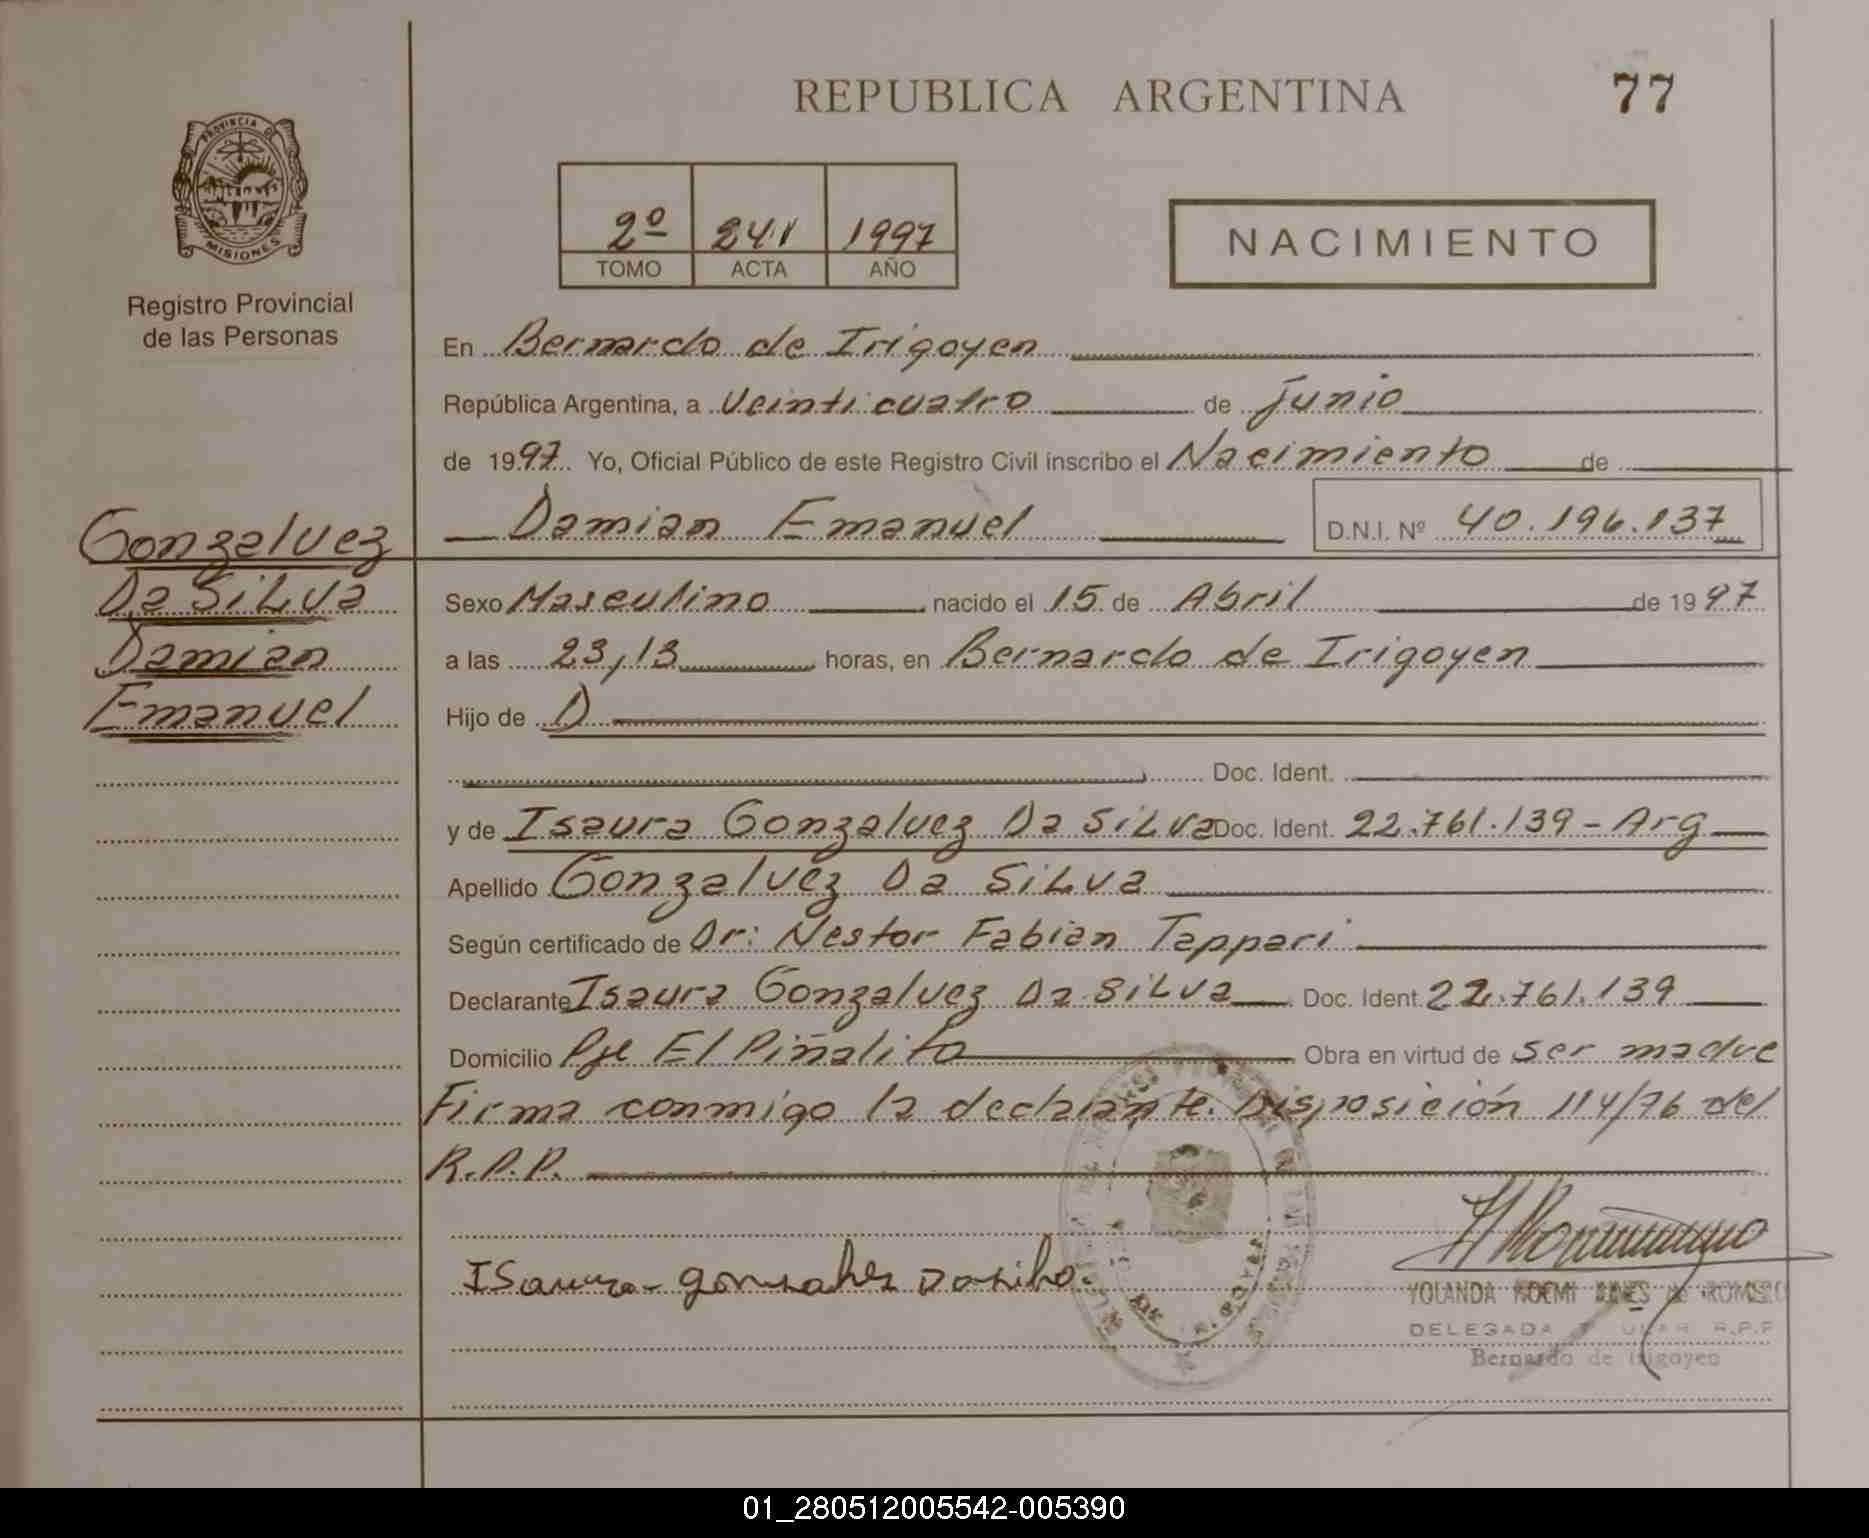 REPUBLICA ARGENTINA
77
PROVINCIA DE
MISIONES
Registro Provincial
de las Personas
2º 241 1997
TOMO ACTA AÑO
NACIMIENTO
En Bernardo de Irigoyen
República Argentina, a Veinticuatro de junio
de 1997. Yo, Oficial Público de este Registro Civil inscribo el Nacimiento de
Damian Emanuel D.N.I. Nº 40.196.137
Gonzalvez
Da SiLva
Damian
Emanuel
Sexo Masculino nacido el 15 de Abril de 1997
a las 23,13 horas, en Bernardo de Irigoyen
Hijo de D
Doc. Ident.
y de Isaura Gonzalvez Da SiLva Doc. Ident. 22.761.139 - Arg
Apellido Gonzalvez Da SiLva
Según certificado de Dr: Nestor Fabian Tappari
Declarante Isaura Gonzalvez Da SiLva Doc. Ident. 22.761.139
Domicilio Pje El Piñalito Obra en virtud de ser madre
Firma conmigo la declarante. Disposición 114/76 del
R.P.P.
Isaura
YOLANDA NOEMI de ROMERO
DELEGADA R.P.P
Bernardo de Irigoyen
01_280512005542-005390